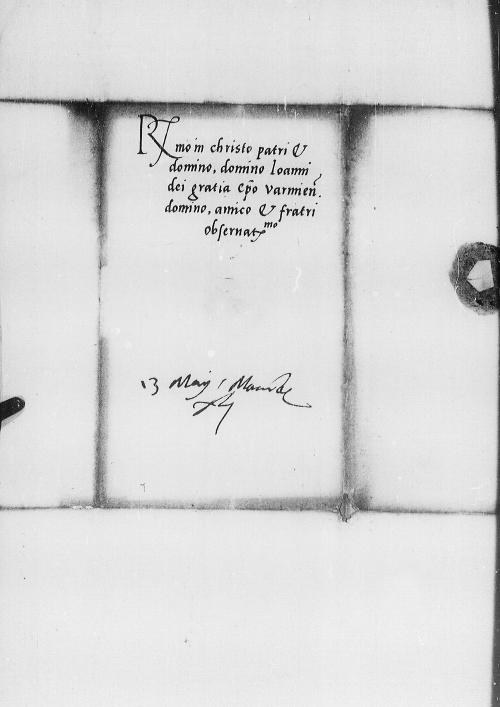 Rmo in christo patri &
domino, domino Ioanni
dei gratia Epo varmien.
domino, amico & fratri
obseruatmo
13 Maij